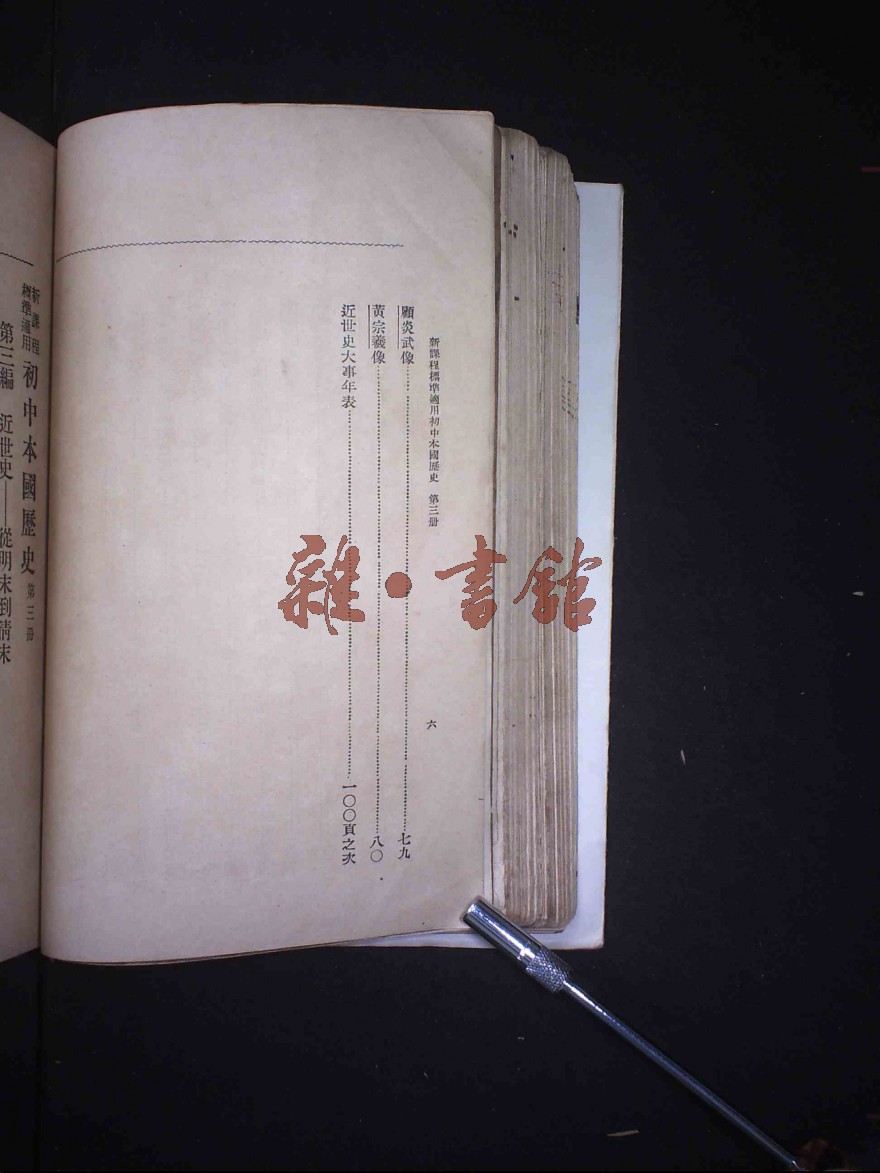 新課程標準適用初中本國歷史 第三册 六
顧炎武像……七九
黃宗羲像……八〇
近世史大事年表……一〇〇頁之次
新課程標準適用 初中本國歷史 第三册
第三編 近世史——從明末到清末
雜·書館